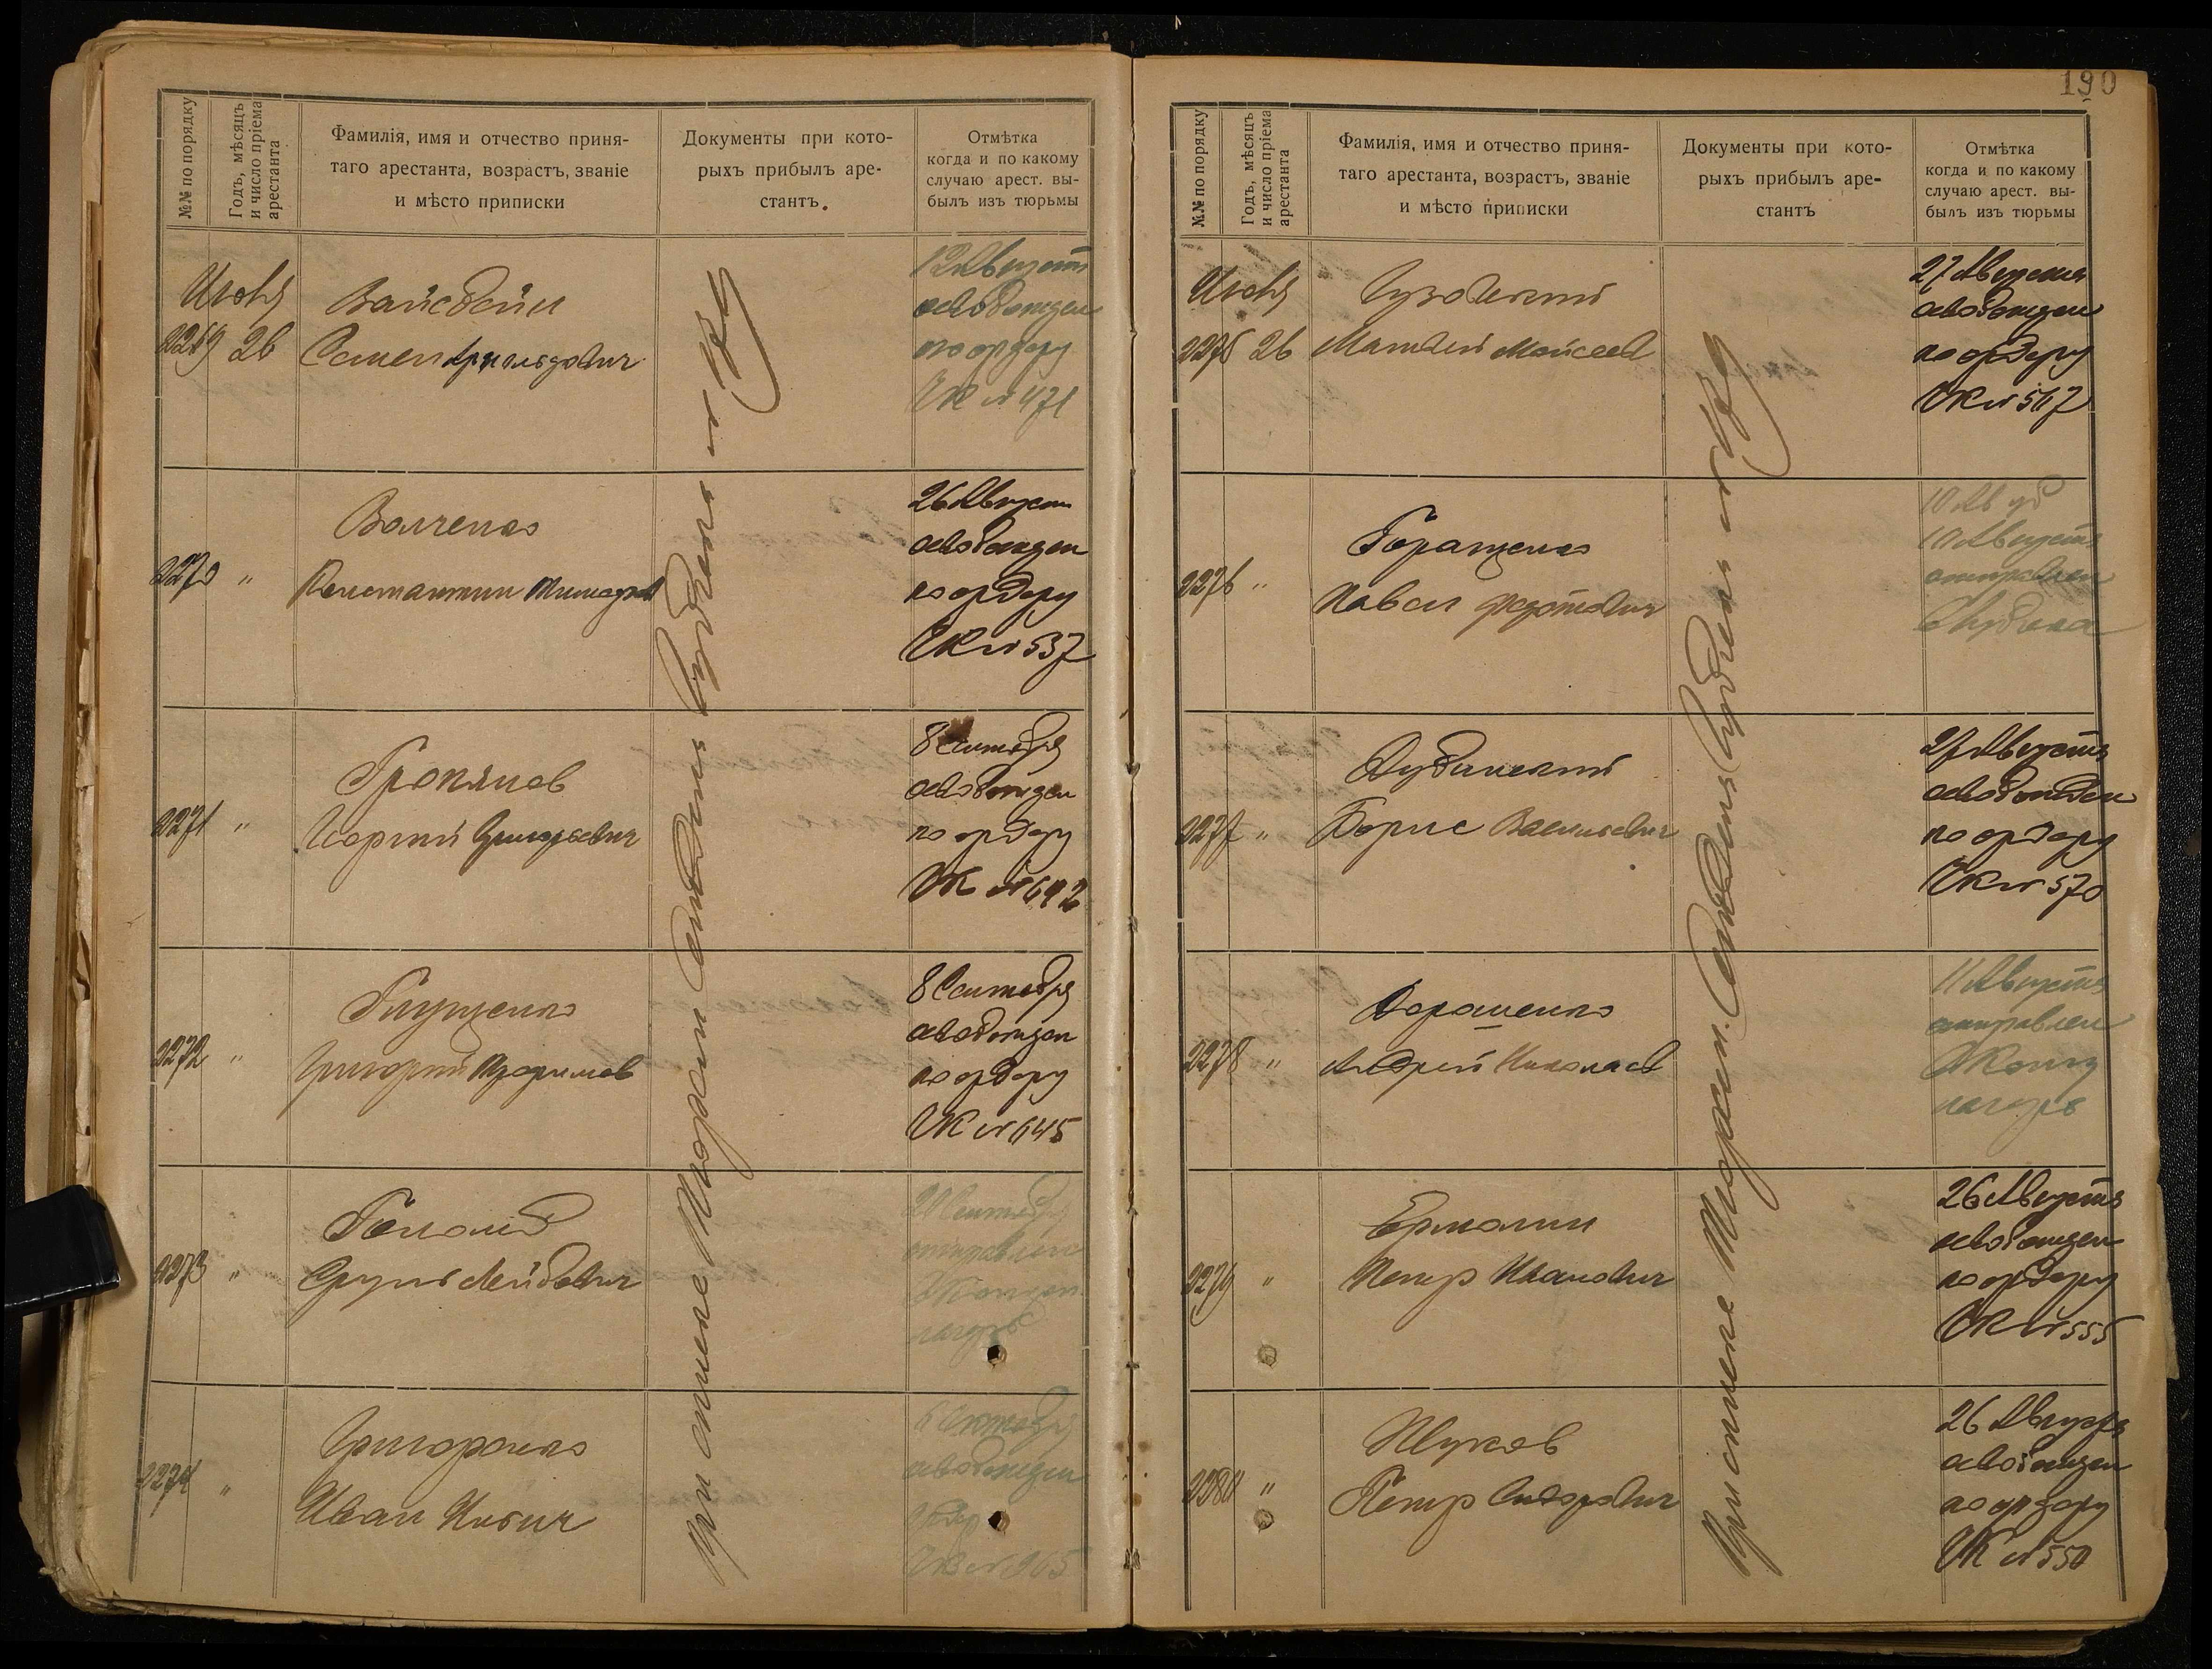 190
№№ по порядку
Годъ, мѣсяцъ
и число пріема
арестанта
Фамилія, имя и отчество приня-
таго арестанта, возрастъ, званіе
и мѣсто приписки
Документы при кото-
рыхъ прибылъ аре-
стантъ.
Отмѣтка
когда и по какому
случаю арест. вы-
былъ изъ тюрьмы
Июль
2269 26
Вайсбейн
Семен
12 Август
освобожден
по ордеру
ЧК № 471
2270 "
Волченко
Константин
26 Август
освобожден
по ордеру
ЧК № 537
2271 "
Георгий Григорьевич
8 Сентября
освобожден
по ордеру
ЧК № 642
2272 "
Глущенко
Григорий
8 Сентября
освобожден
по ордеру
ЧК № 645
2273 "
Сруль Лейбович
20 Сентября
отправлен
в Концен
лагерь
2274 "
Григоренко
Иван
освобожден
ЧК № 965
При отнеске Тюрем
№№ по порядку
Годъ, мѣсяцъ
и число пріема
арестанта
Фамилія, имя и отчество приня-
таго арестанта, возрастъ, званіе
и мѣсто приписки
Документы при кото-
рыхъ прибылъ аре-
стантъ
Отмѣтка
когда и по какому
случаю арест. вы-
былъ изъ тюрьмы
Июль
2275 26
Матвей Мойсеев
27 Августа
освобожден
по ордеру
ЧК № 567
2276 "
Геращенко
Павел Федотович
10 Авгус
10 Августа
отправлен
2277 "
Дубинский
Борис Васильевич
27 Августа
освобожден
по ордеру
ЧК № 570
2278 "
Дорошенко
Андрей Николаев
11 Августа
отправлен
в Конц
лагерь
2279 "
Ермолин
Петр Иванович
26 Августа
освобожден
по ордеру
ЧК № 555
2280 "
Жуков
Петр Сидорович
26 Августа
освобожден
по ордеру
ЧК № 550